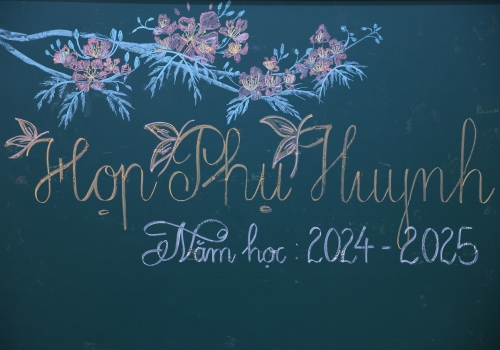 Họp Phụ Huynh
Năm học : 2024 - 2025